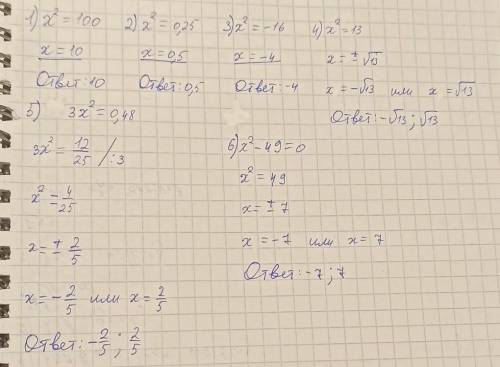 1) x² = 100
x = 10
Ответ: 10
2) x² = 0,25
x = 0,5
Ответ: 0,5
3) x² = -16
x = -4
Ответ: -4
4) x² = 13
x = ± √13
x = -√13 или x = √13
Ответ: -√13 ; √13
5) 3x² = 0,48
3x² = 12/25 / :3
x² = 4/25
x = ± 2/5
x = - 2/5 или x = 2/5
Ответ: - 2/5 ; 2/5
6) x² - 49 = 0
x² = 49
x = ± 7
x = -7 или x = 7
Ответ: -7 ; 7